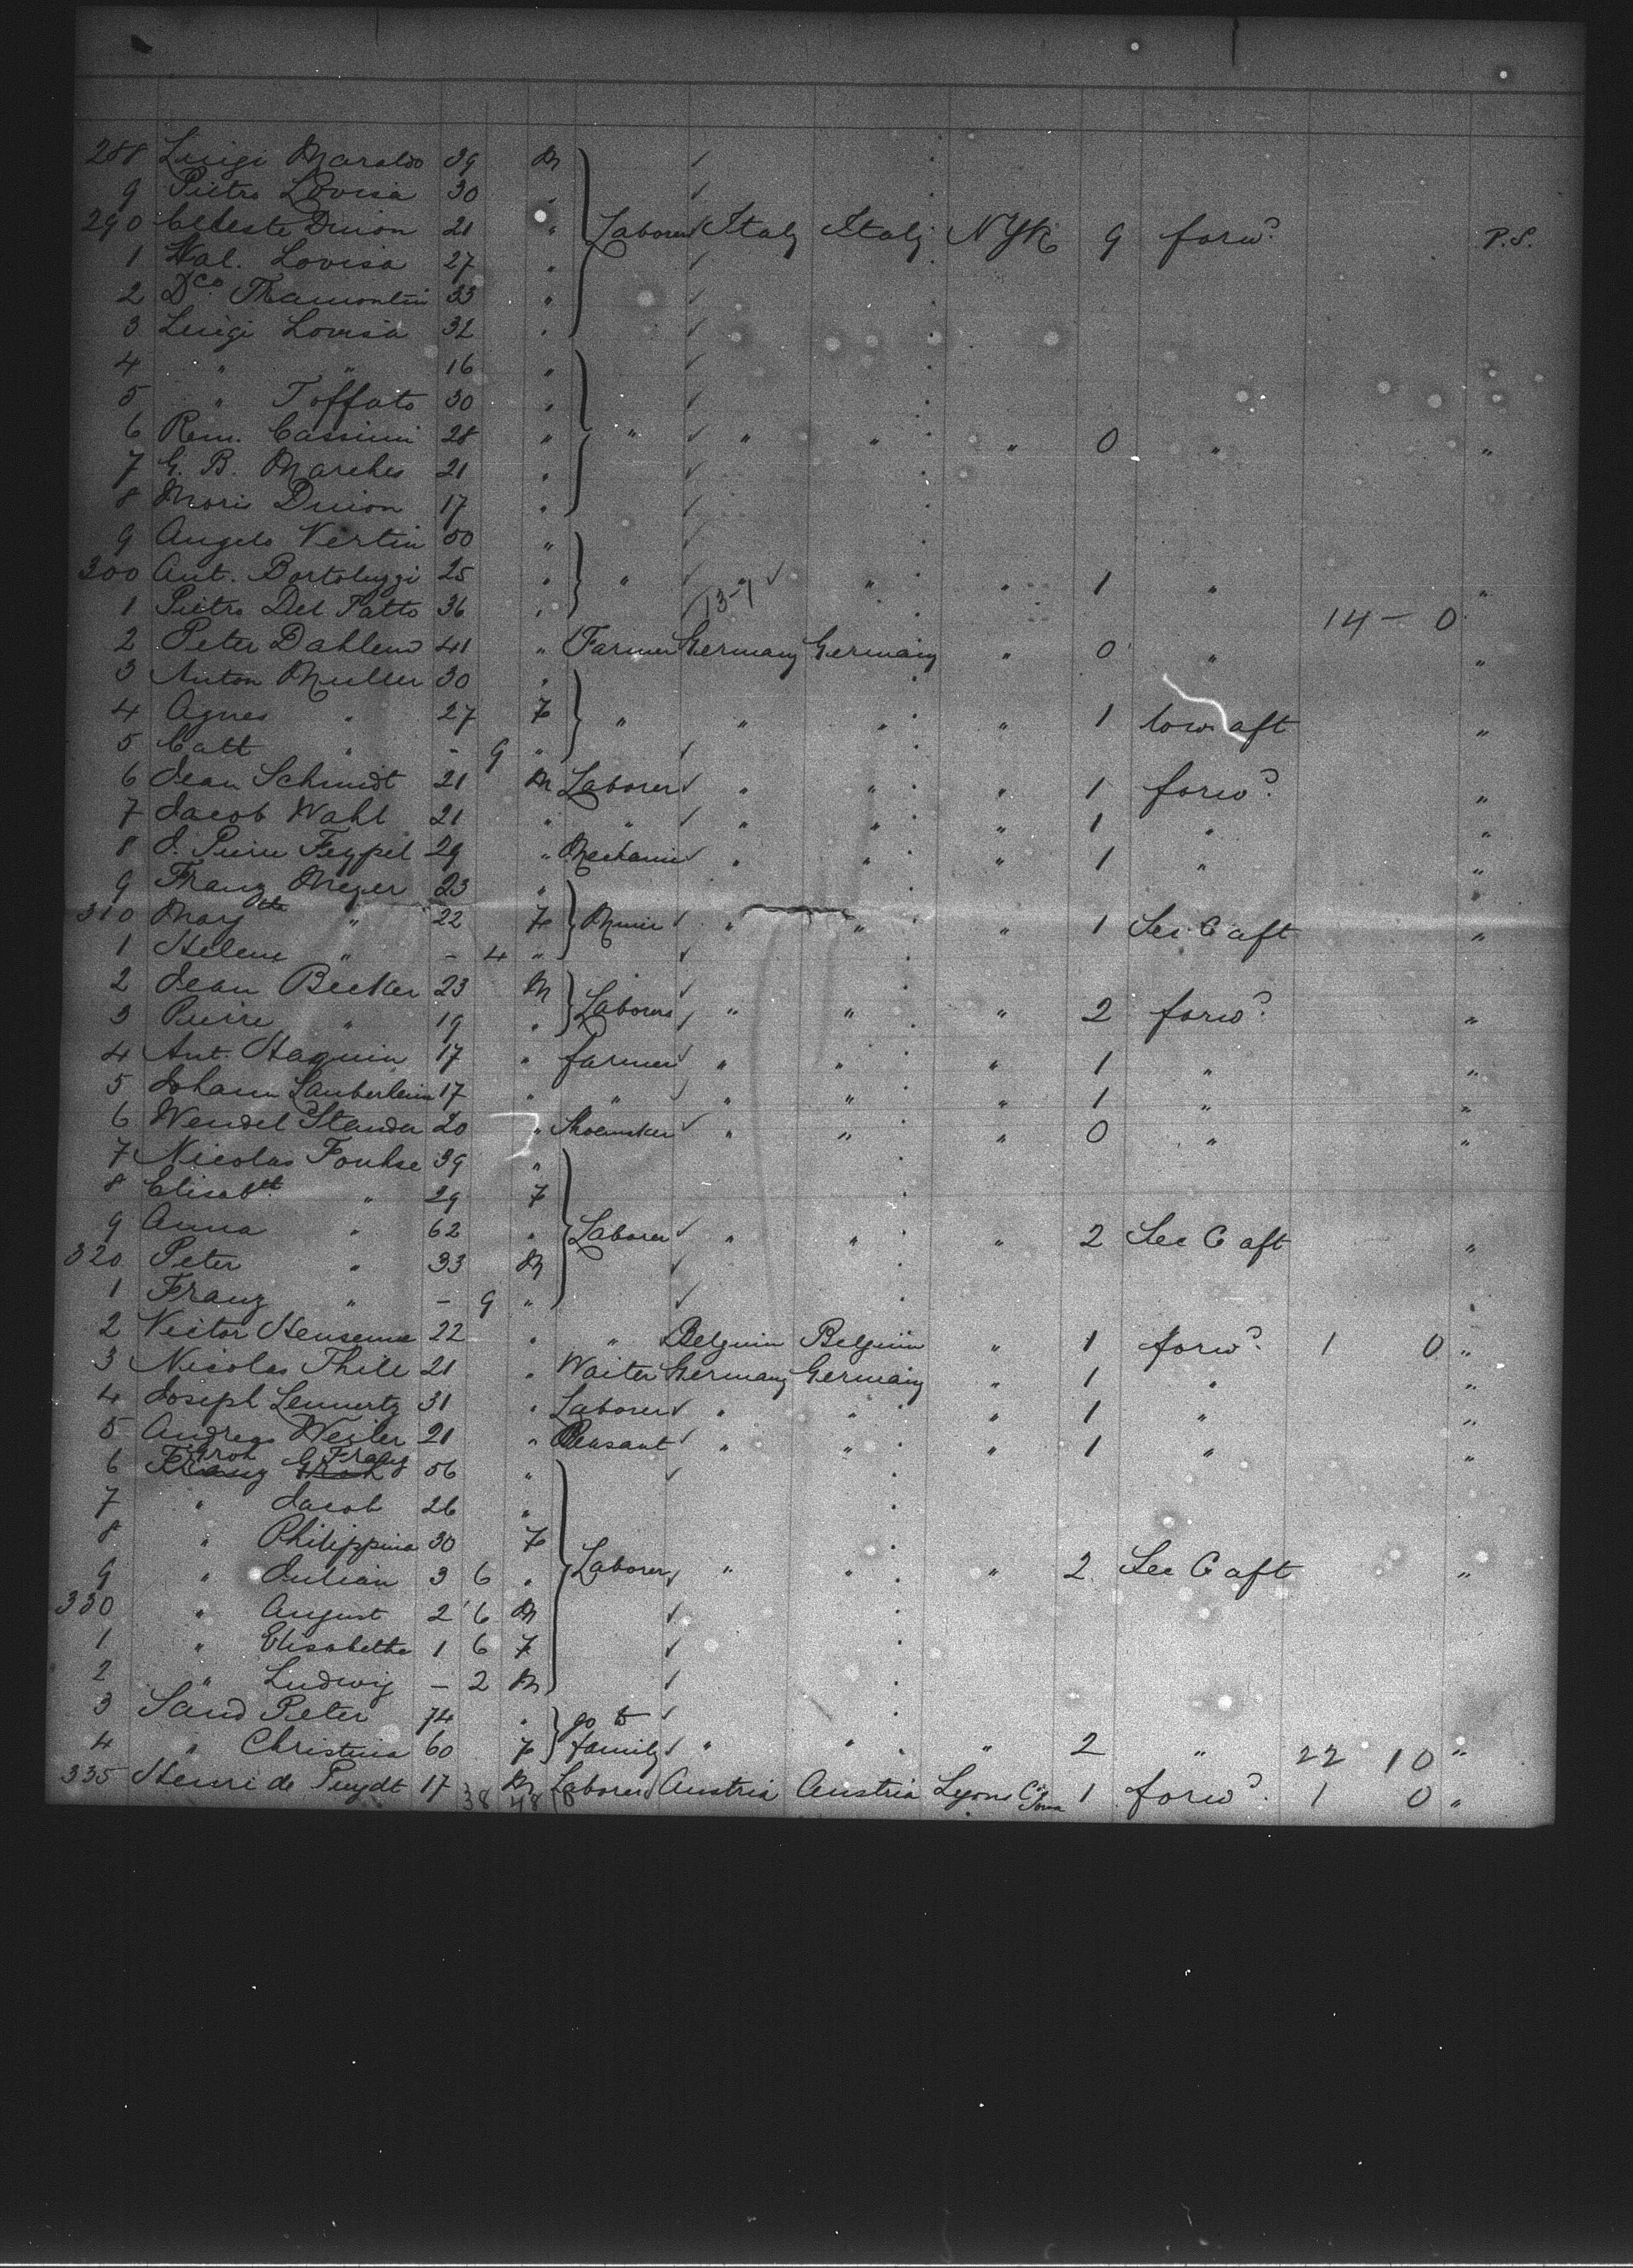 288 Luigi Maraldo 39 M
9 Pietro Lovisa 30 "
290 Celeste Duion 21 " Laborers Italy Italy NYk 9 forwd P.S.
1 Val. Lovisa 27 "
2 Dco Tramontin 33 "
3 Luigi Lovisa 32 "
4 " " 16 "
5 " Toffato 30 "
6 Rom. Cassini 28 " " " " " 0 " "
7 G. B. Marches 21 "
8 Moris Duion 17 "
9 Angelo Vertin 50 "
300 Ant. Bortoluzzi 25 " " " " " 1 " "
1 Pietro Del Tatto 36 " 13-1 14 – 0
2 Peter Dahlem 41 " Farmer Germany Germany " 0 " "
3 Anton Muller 30 "
4 Agnes " 27 F " " " " 1 low aft "
5 Catt " - 9 "
6 Jean Schmidt 21 M Laborer " " " 1 forwd "
7 Jacob Wahl 21 " " " " " 1 " "
8 J. Pierre Feypel 29 " Mechanic " " " 1 " "
9 Franz Meyer 23 "
310 Margtte " 22 F " " " 1 Sec C aft "
1 Helene " - 4 "
2 Jean Becker 23 M
3 Pierre " 19 " Laborers " " " 2 forwd "
4 Ant. Haquin 17 " farmer " " " 1 " "
5 Johann Lauberheim 17 " " " " " 1 " "
6 Wendel Stauda 20 " Shoemaker " " " 0 " "
7 Nicolas Fouhse 39 "
8 Elisabth " 29 F
9 Anna " 62 " Laborer " " " 2 Sec C aft "
320 Peter " 33 M
1 Franz " - 9 "
2 Victor Henseme 22 " " Belguim Belguim " 1 forwd 1 0 "
3 Nicolas Thill 21 " Waiter Germany Germany " 1 " "
4 Joseph Lennertz 31 " Laborer " " " 1 " "
5 Andreas Weiler 21 " Peasant " " " 1 " "
Groh Franz
6 Franz Groh 56 "
7 " Jacob 26 "
8 " Philippina 30 F
9 " Julian 3 6 " Laborer " " " 2 Sec C aft "
330 " August 2 6 M
1 " Elisabetha 1 6 F
2 " Ludwig - 2 M
3 Sand Peter 74 " go to
4 " Christina 60 F family " " " 2 " 22 10 "
335 Henri de Puydt 17 M Laborer Austria Austria Lyons Iowa 1 forwd 1 0 "
38 48